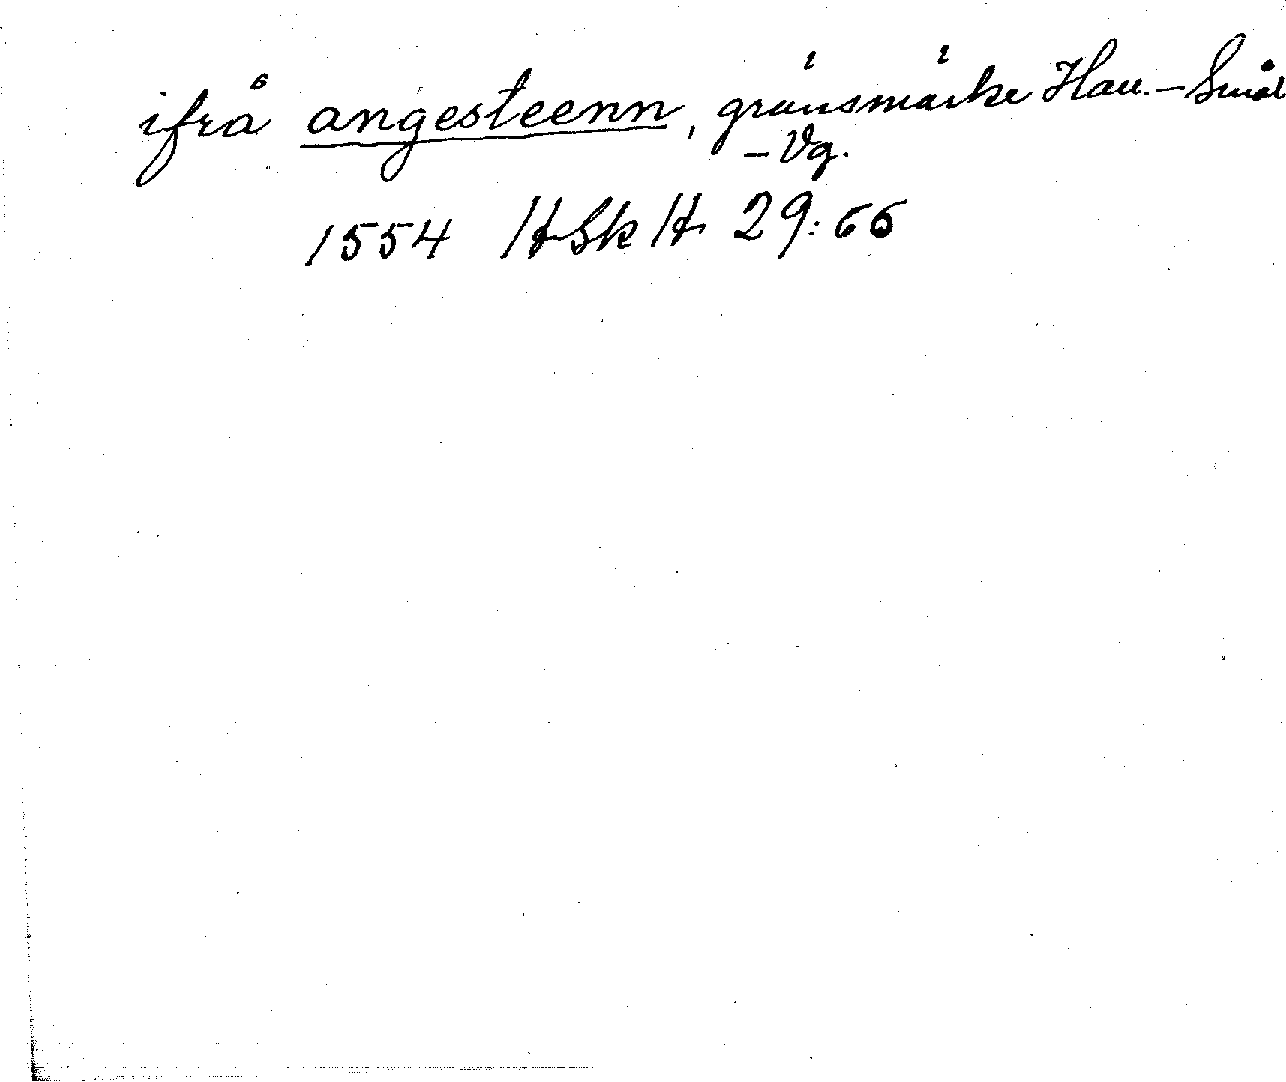 ifrå angesteenn, gränsmärke Hall.–Smål
–Vg.
1554 HSkH 29:66